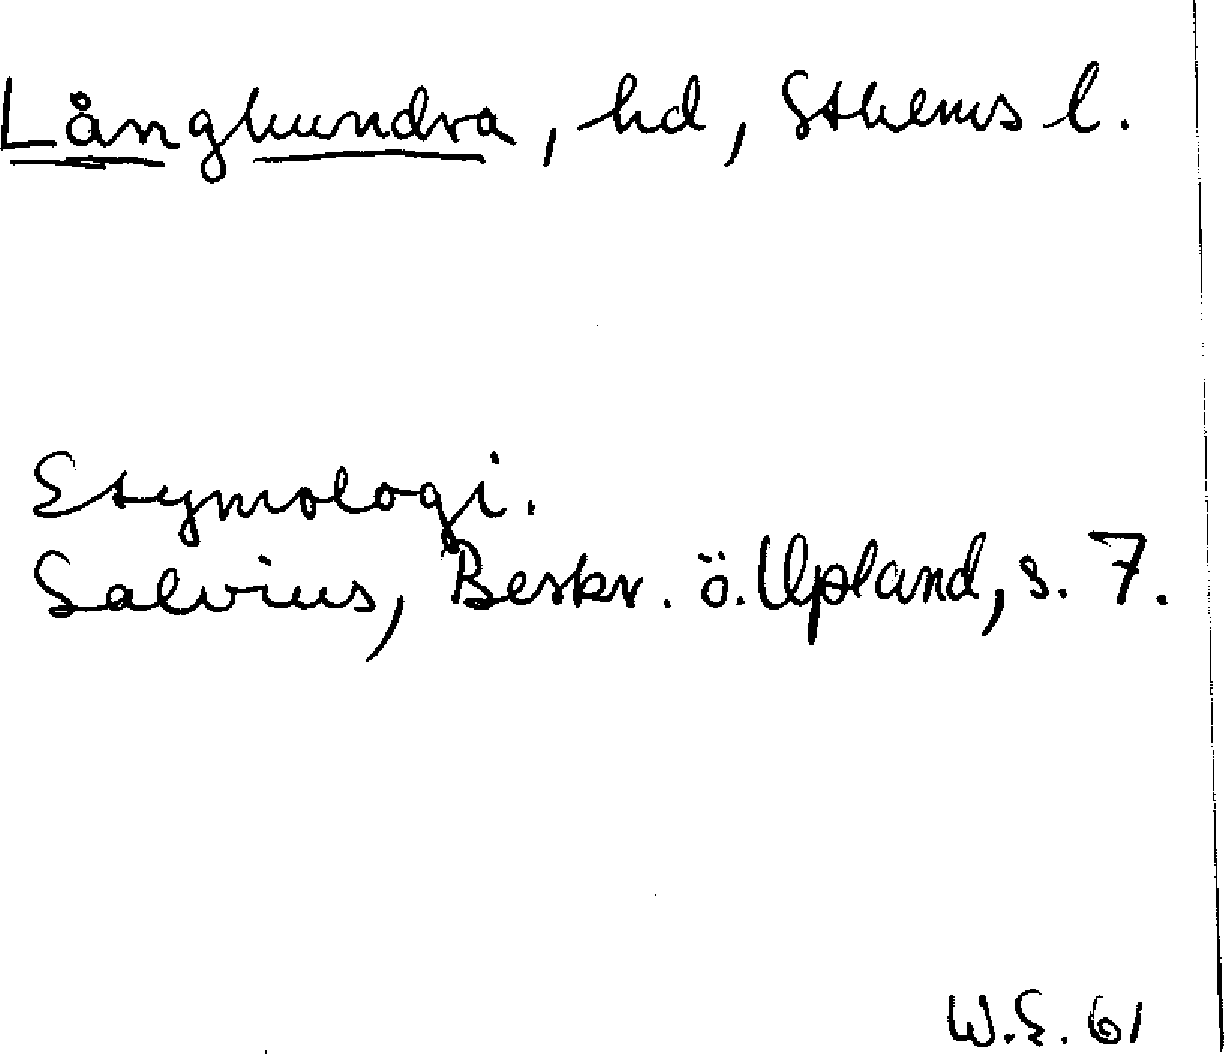 Långhundra, hd, Sthlms l.
Etymologi.
Salvius, Beskr. ö. Upland, s. 7.
W.E. 61